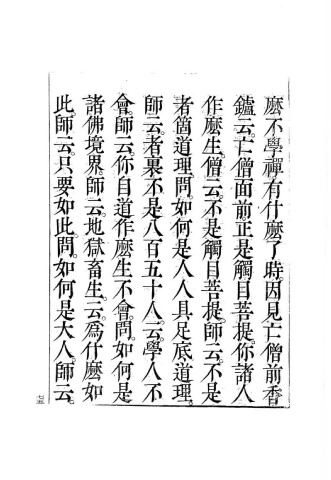 麽不學禪有什麽了時因見亡僧前香
鑪云亡僧面前正是觸目菩提你諸人
作麽生僧云不是觸目菩提師云不是
者箇道理問如何是人人具足底道理
師云者裏不是八百五十人云學人不
會師云你自道作麽生不會問如何是
諸佛境界師云地獄畜生云爲什麽如
此師云只要如此問如何是大人師云
七五